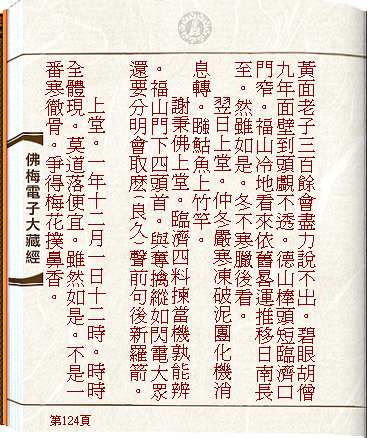 黃面老子三百餘會盡力說不出。碧眼胡僧
九年面壁到頭覷不透。德山棒頭短臨濟口
門窄。福山冷地看來依舊晷運推移日南長
至。然雖如是。冬不寒臘後看。
翌日上堂。仲冬嚴寒凍破泥團化機消
息轉。鰌鮎魚上竹竿。
謝秉佛上堂。臨濟四料揀當機孰能辨
。福山門下四頭首。與奪擒縱如閃電大眾
還要分明會取麼(良久)聲前句後新羅箭。
上堂。一年十二月一日十二時。時時
全體現。莫道落便宜。雖然如是。不是一
番寒徹骨。爭得梅花撲鼻香。
佛梅電子大藏經
第124頁